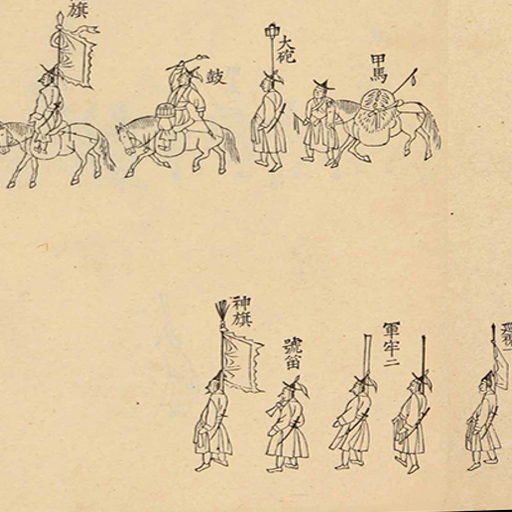 甲馬
大砲
鼓
旗
軍牢二
號笛
神旗